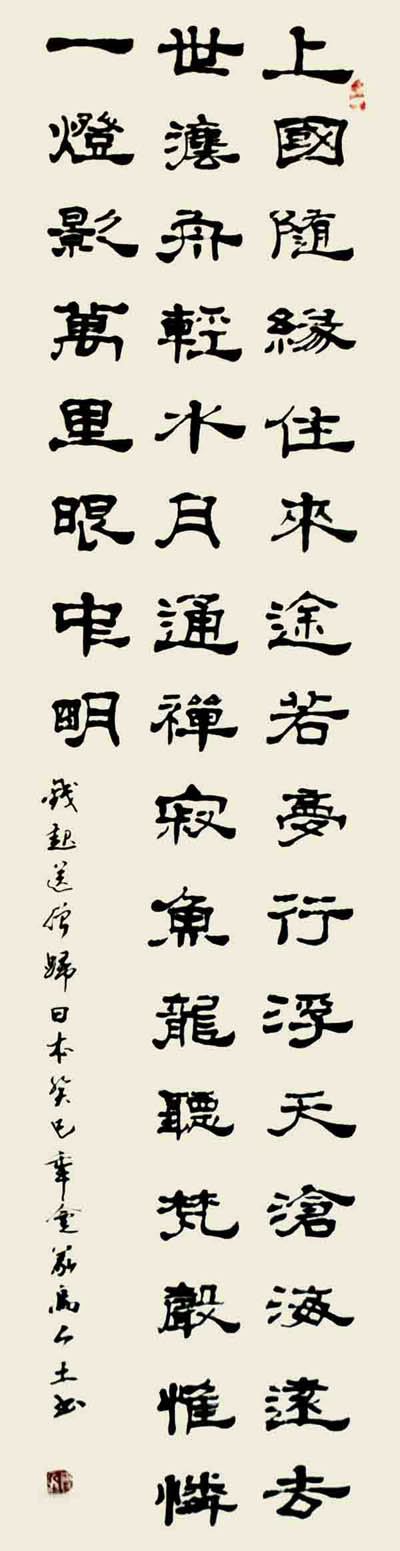 上國隨緣住來途若夢行浮天滄海遠去
世灋舟輕水月通禪寂魚龍聽梵聲惟憐
一燈影萬里眼中明
錢起送僧歸日本癸巳年高士书